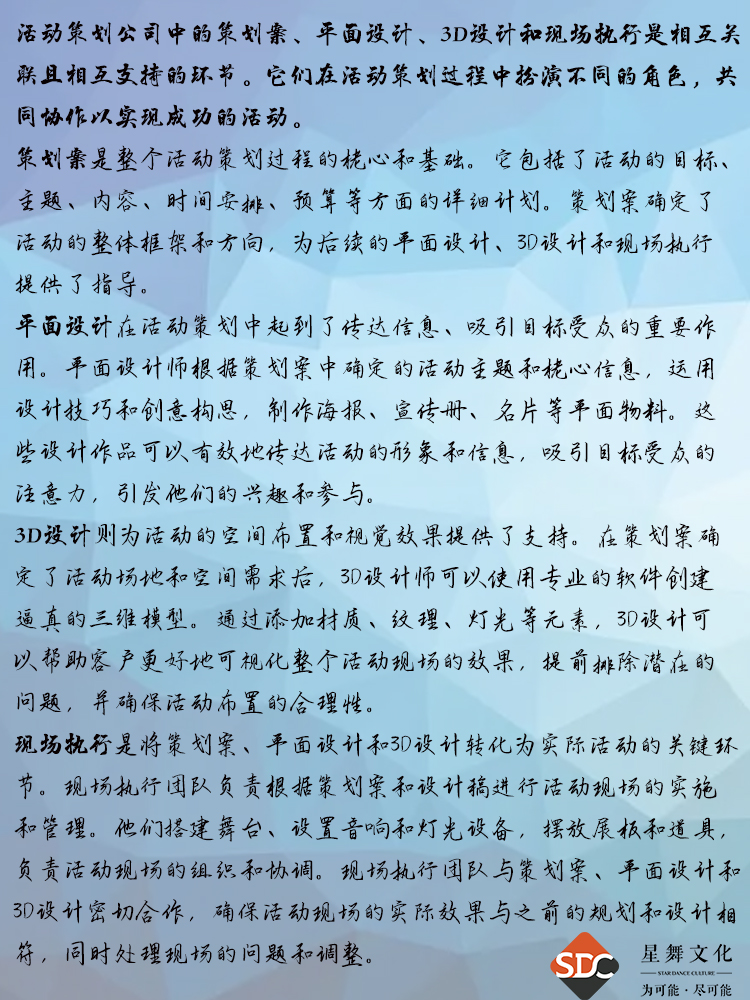 活动策划公司中的策划案、平面设计、3D设计和现场执行是相互关
联且相互支持的环节。它们在活动策划过程中扮演不同的角色，共
同协作以实现成功的活动。
策划案是整个活动策划过程的核心和基础。它包括了活动的目标、
主题、内容、时间安排、预算等方面的详细计划。策划案确定了
活动的整体框架和方向，为后续的平面设计、3D设计和现场执行
提供了指导。
平面设计在活动策划中起到了传达信息、吸引目标受众的重要作
用。平面设计师根据策划案中确定的活动主题和核心信息，运用
设计技巧和创意构思，制作海报、宣传册、名片等平面物料。这
些设计作品可以有效地传达活动的形象和信息，吸引目标受众的
注意力，引发他们的兴趣和参与。
3D设计则为活动的空间布置和视觉效果提供了支持。在策划案确
定了活动场地和空间需求后，3D设计师可以使用专业的软件创建
逼真的三维模型。通过添加材质、纹理、灯光等元素，3D设计可
以帮助客户更好地可视化整个活动现场的效果，提前排除潜在的
问题，并确保活动布置的合理性。
现场执行是将策划案、平面设计和3D设计转化为实际活动的关键环
节。现场执行团队负责根据策划案和设计稿进行活动现场的实施
和管理。他们搭建舞台、设置音响和灯光设备，摆放展板和道具，
负责活动现场的组织和协调。现场执行团队与策划案、平面设计和
3D设计密切合作，确保活动现场的实际效果与之前的规划和设计相
符，同时处理现场的问题和调整。
SDC
星舞文化
STAR DANCE CULTURE
为可能·尽可能